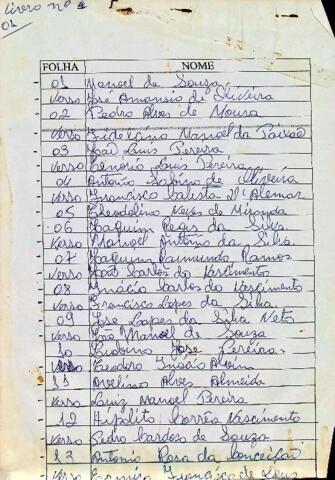 Livro nº
01
FOLHA NOME
01 Manoel de Souza
Verso José Amansio de Oliveira
02 Pedro Alves de Moura
Verso Fidelcino Manoel da Paixão
03 João Luis Pereira
Verso Cenório Luis Pereira
04 Antonio Sabino de Oliveira
Verso Francisco batista D'Alemar
05 Theodolino Neves de Miranda
06 Joaquim Regis da Silva
Verso Manoel Antonio da Silva
07 Joaquim Raimundo Ramos
Verso João Carlos do Nascimento
08 Ignácio Carlos do Nascimento
Verso Francisco Lopes da Silva
09 José Lopes da Silva Neto
Verso João Manoel de Souza
10 José Pereira
Verso Teodoro Inácio
11 Avelino Alves Almeida
Verso Luiz Manoel Pereira
12 Hipolito Corrêa Nascimento
Verso Pedro Cardoso de Souza
13 Antonio Rosa da Conceição
Verso Francisco de